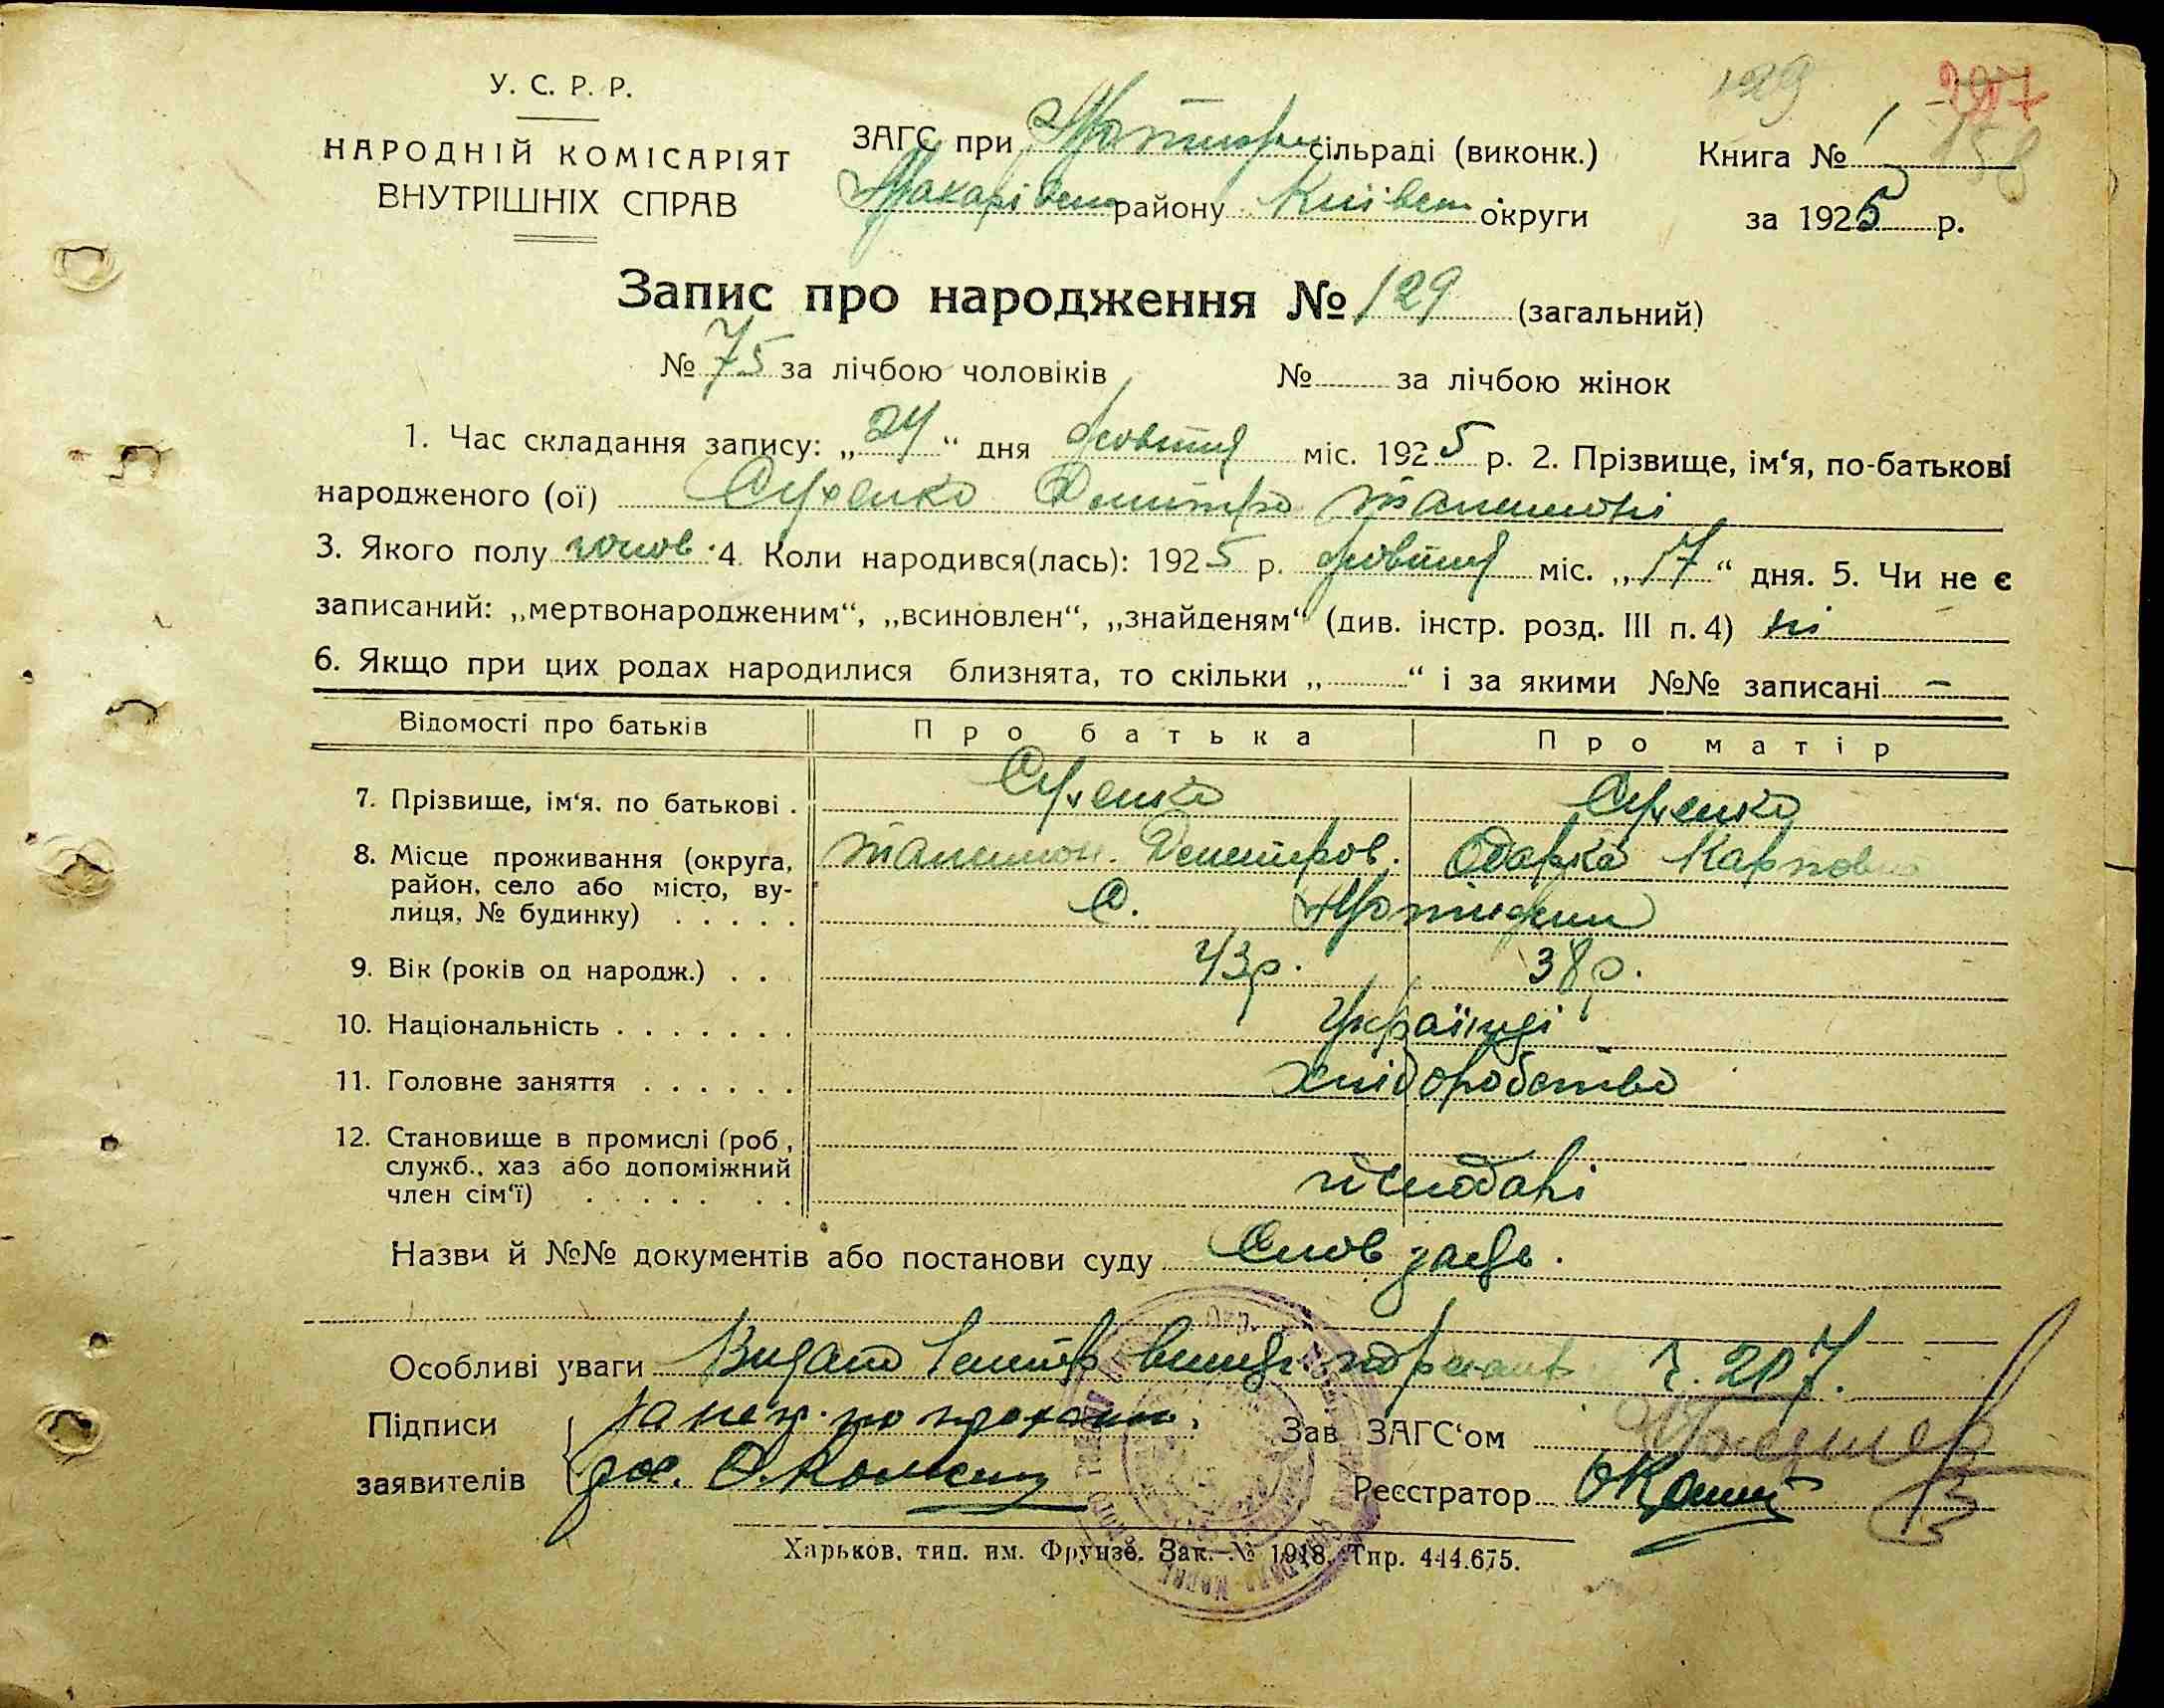 129
207
158
У. С. Р. Р.
НАРОДНІЙ КОМІСАРІЯТ
ВНУТРІШНІХ СПРАВ
ЗАГС при Мотижин сільраді (виконк.)
Макарівськ району Київськ округи
Книга № 1
за 1925 р.
Запис про народження № 129 (загальний)
№ 75 за лічбою чоловіків № за лічбою жінок
1. Час складання запису: „24“ дня жовтня міс. 1925 р. 2. Прізвище, ім‘я, по-батькові
народженого (ої) Сухенко Дмитро
3. Якого полу чолов. 4. Коли народився(лась): 1925 р. жовтня міс. „17“ дня. 5. Чи не є
записаний: „мертвонародженим“, „всиновлен“, „знайденям“ (див. інстр. розд. III п. 4) ні
6. Якщо при цих родах народилися близнята, то скільки „ “ і за якими №№ записані –
Відомості про батьків Про батька Про матір
7. Прізвище, ім‘я, по батькові . Сухенко Сухенко
8. Місце проживання (округа, Одарка Карповна
район, село або місто, ву-
лиця, № будинку) . . . . . С. Мотижин
9. Вік (років од народж.) . . 43 р. 38 р.
10. Національність . . . . . . . Українці
11. Головне заняття . . . . . . хліборобство
12. Становище в промислі (роб.,
служб., хаз або допоміжний
член сім‘ї) . . . . . . .
Назви й №№ документів або постанови суду
Особливі уваги ч. 207.
Підписи
За неп. по проханню
заявителів
Зав ЗАГС‘ом
Реєстратор
Харьков, тип. им. Фрунзе. Зак. № 1918. Тир. 444.675.